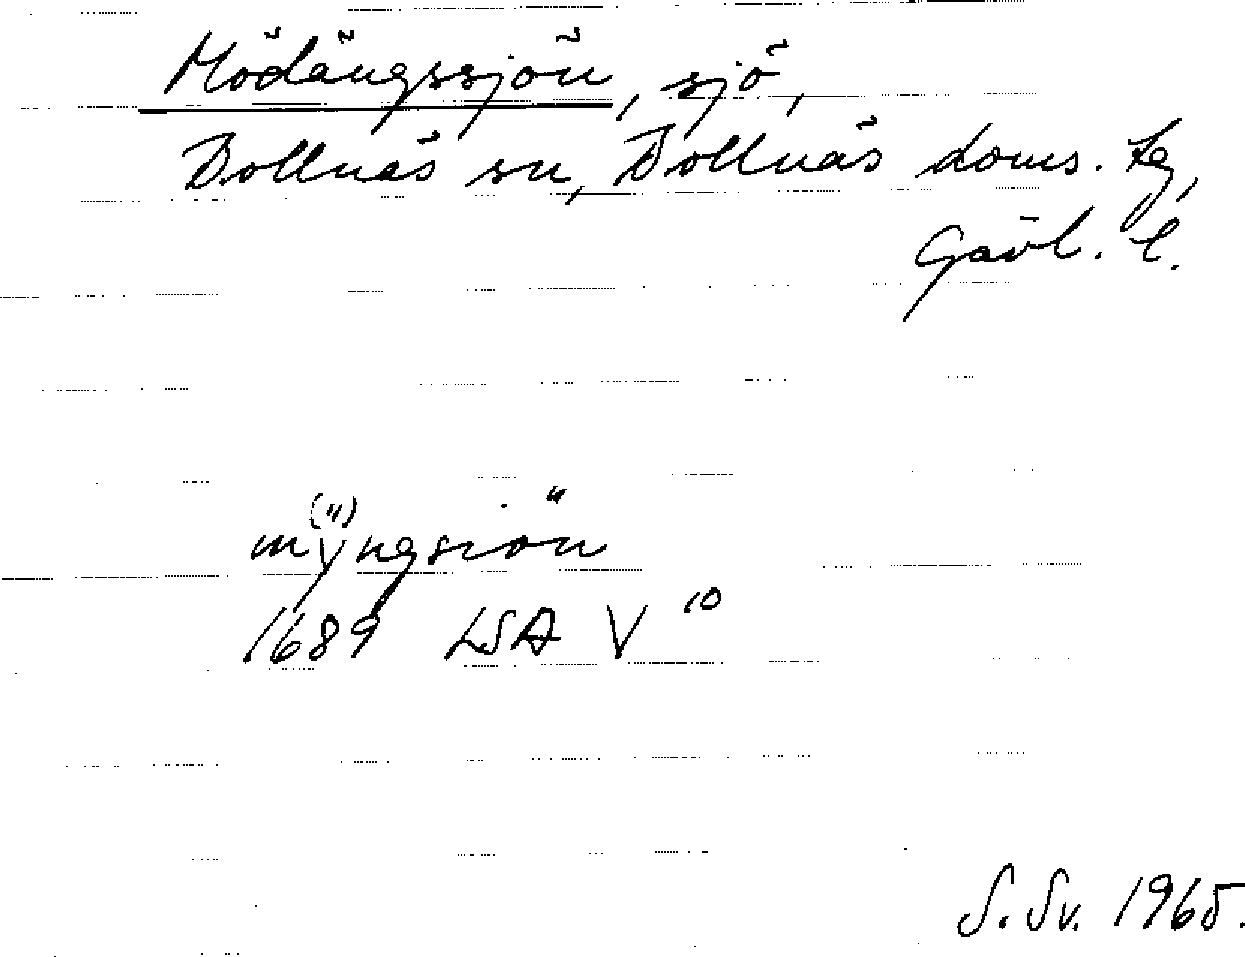 Mödängssjön, sjö,
Bollnäs sn, Bollnäs doms. tg,
Gävl. l.
mÿngsiön
1689 LSA V 10
S. Sv. 1965.